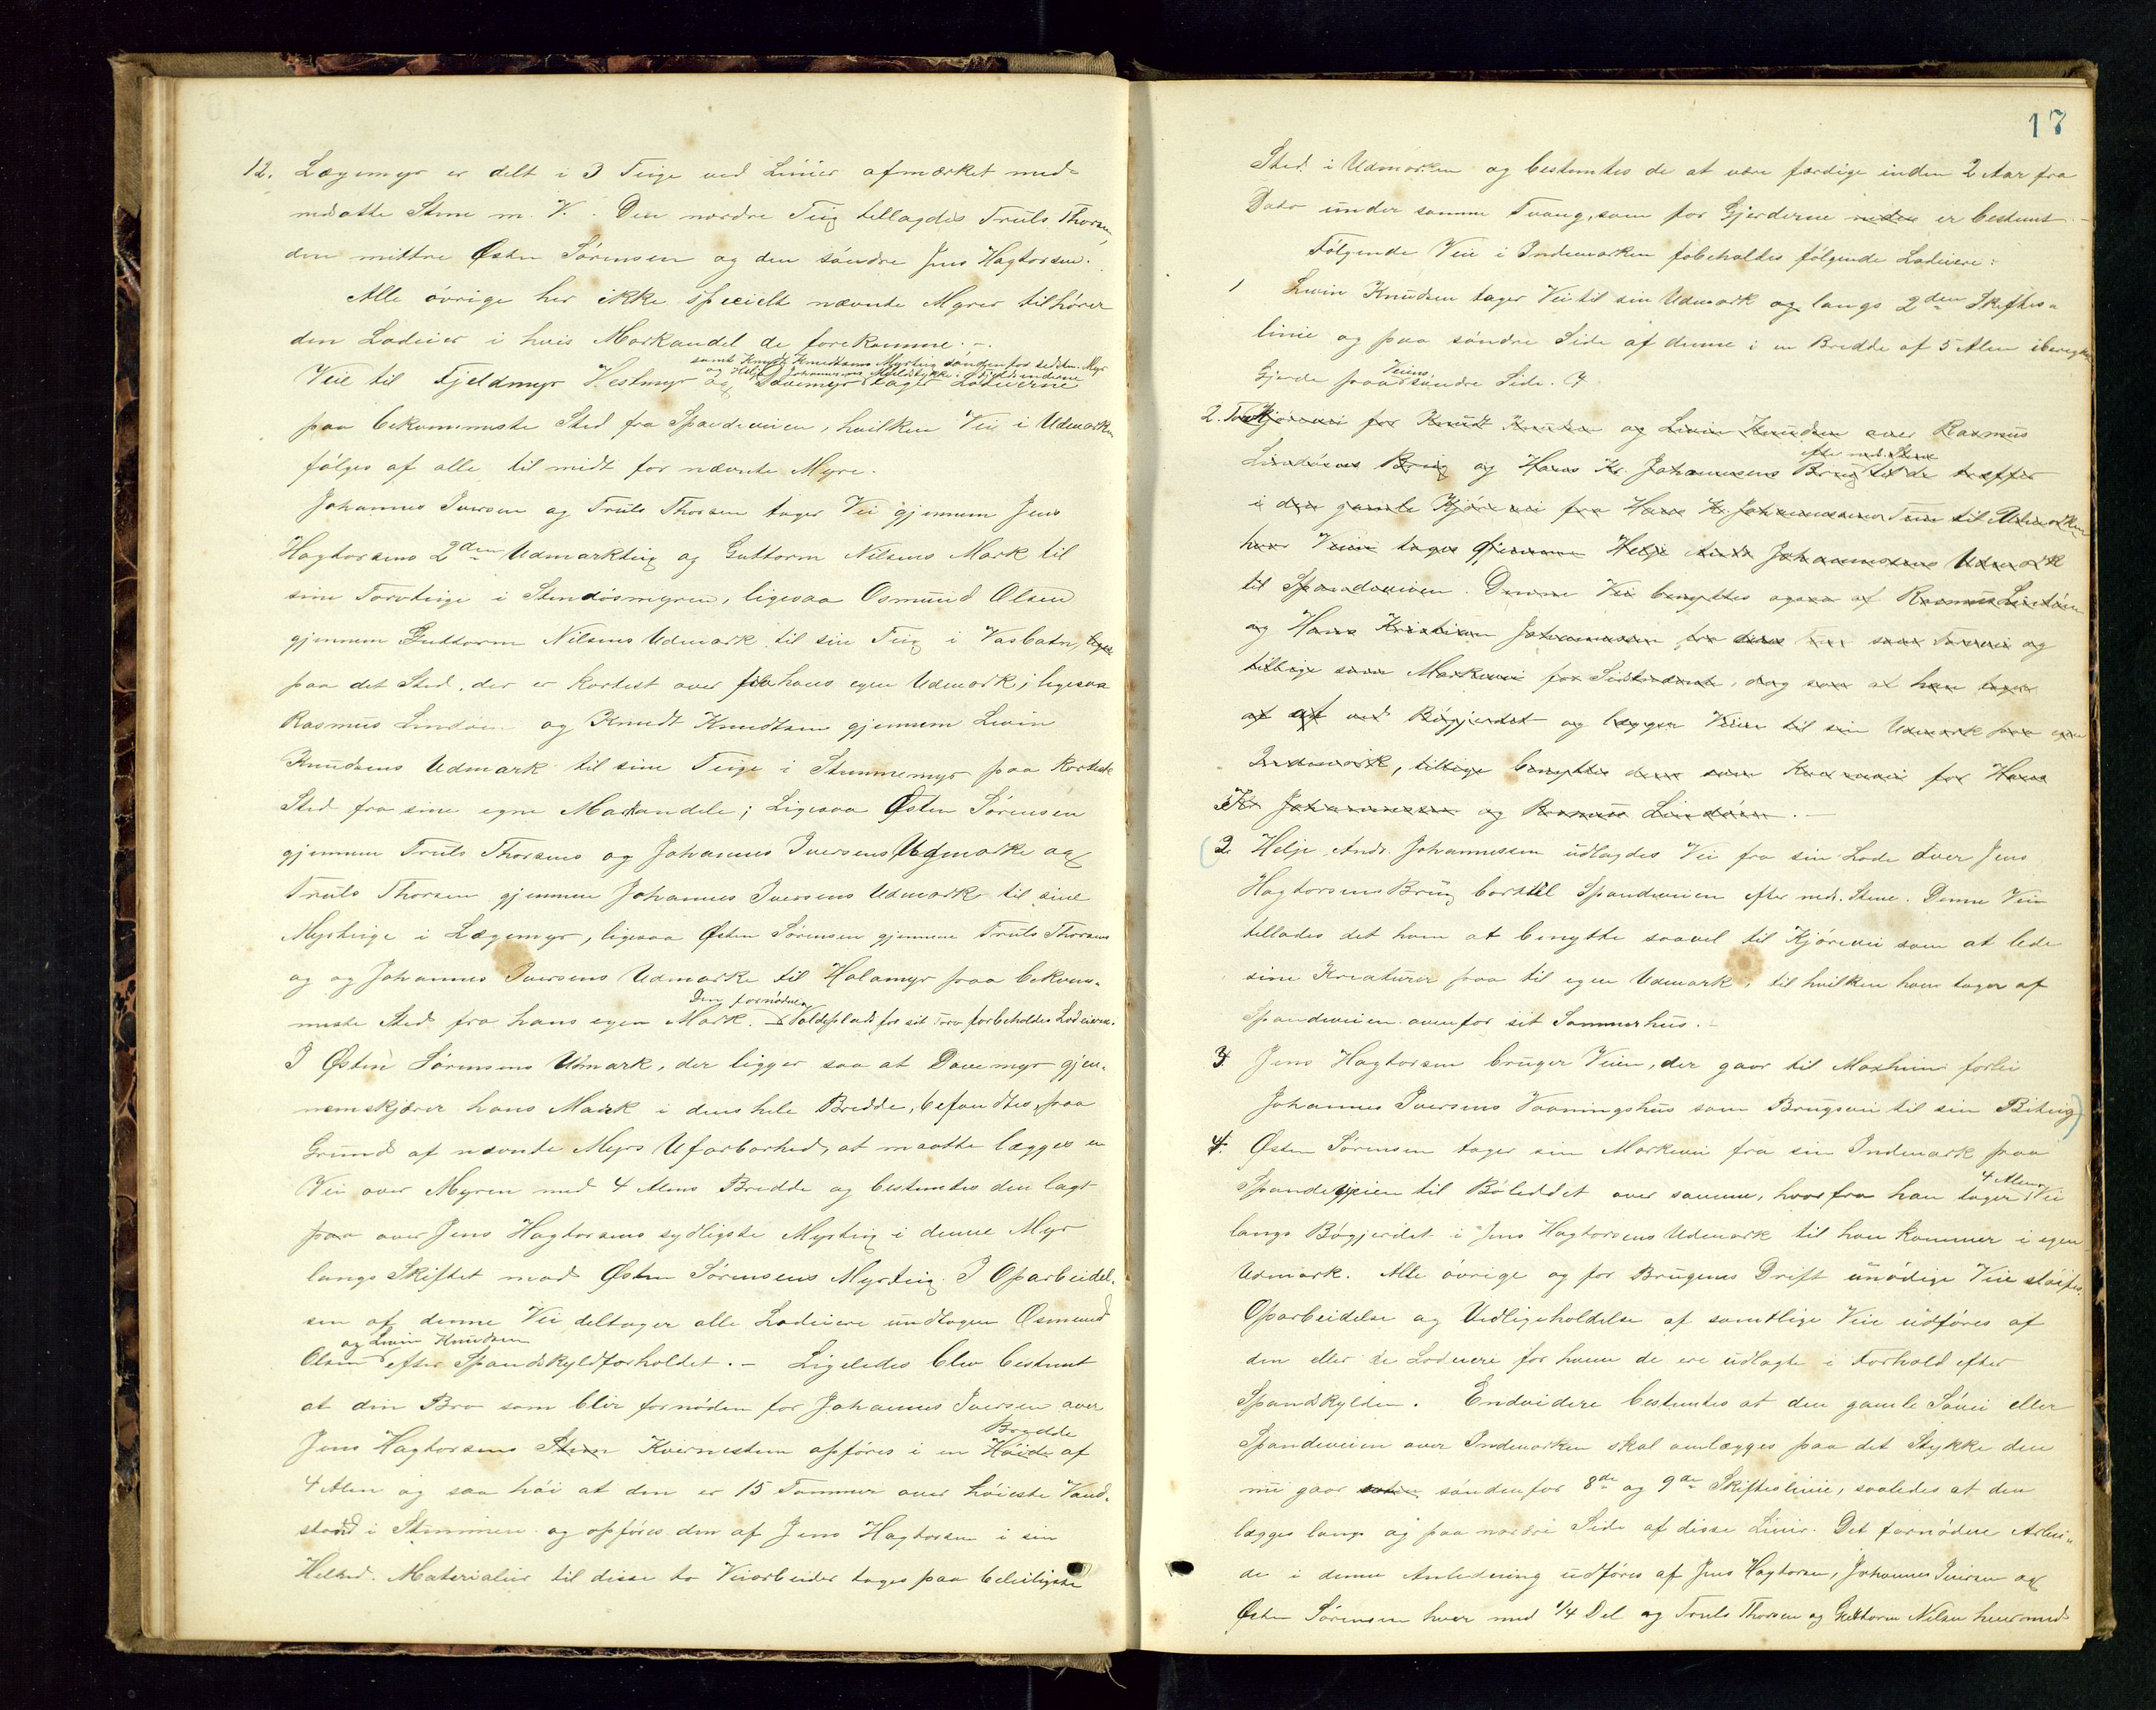 12. Lægemyr er delt i 3 Teige ved Linier afmærket med
nedsatte Stene m. V. Den nordre Teig tillagdes Truls Thorsen,
den mittre Østen Sørensen og den søndre Jens Hagtorsen.
Alle øvrige her ikke specielt nævnte Myrer tilhører
den Lodeier i hvis Markandel de forekomme. -
samt Knudt Knudtsens Myrteig søndenfor sidstn. Myr
og Helje A Johannesens Myrstykke i Fjeldsenderne
Veie til Fjeldmyr Hestmyr og Dauemyr tager Lodeierne
paa bekvemmeste Sted fra Spandeveien, hvilken Vei i Udmarken
følges af alle til midt for nævnte Myre.
Johannes Iversen og Truls Thorsen tager Vei gjennem Jens
Hagtorsens 2den Udmarkteig og Guttorm Nilsens Mark til
sine Torvteige i Stendøsmyren, ligesaa Osmund Olsen
gjennem Guttorm Nilsens Udmark til sin Teig i Vasbotn,
paa det Sted, der er kortest over fra hans egen Udmark; ligesaa
Rasmus Lindøen og Knudt Knudtsen gjennem Livin
Knudsens Udmark til sine Teige i Stemmemyr paa korteste
Sted fra sine egne Markandele; Ligesaa Østen Sørensen
gjennem Truls Thorsens og Johannes Iversens Udmarke og
Truls Thorsen gjennem Johannes Iversens Udmark til sine
Myrteige i Lægemyr, ligesaa Østen Sørensen gjennem Truls Thorsens
og og Johannes Iversens Udmarke til Holamyr paa bekvem-
Den fornødne
meste Sted fra hans egen Mark. Valdeplads for sit Torv forbeholdes Lodeierne.
I Østen Sørensens Udmark, der ligger saa at Dauemyr gjen-
nemskjærer hans Mark i dens hele Bredde, befandtes, paa
Grund af nævnte Myrs Ufarbarhed, at maatte lægges en
Vei over Myren med 4 Alens Bredde og bestemtes den lagt
paa over Jens Hagtorsens sydligste Myrteig i denne Myr
langs Skiftet mod Østen Sørensens Myrteig. I Oparbeidel-
sen af denne Vei deltager alle Lodeiere undtagen Osmund
og Livin Knudsen
Olsen efter Spandskyldforholdet. - Ligeledes blev bestemt
at den Bro som blir fornøden for Johannes Iversen over
Bredde
Jens Hagtorsens Stem Kvernestem opføres i en Høide af
4 Alen og saa høi at den er 15 Tommer over høieste Vand-
stand i Stemmen og opføres den af Jens Hagtorsen i sin
Helhed. Materialier til disse to Veiarbeider tages paa beleiligste
17
Sted i Udmarken og bestemtes de at være færdige inden 2 Aar fra
Dato under samme Tvang, som for Gjerderne er bestemt. -
Følgende Veie i Indmarken fobeholdes følgende Lodeiere:
1 Livin Knudsen tager Vei til sin Udmark og langs 2den Skiftes-
linie og paa søndre Side af denne i en Bredde af 5 Alen iberegnet
Veiens
Gjerde paa søndre Side.
2. Kjørevei for Knudt Knudsen og Livin Knudsen over Rasmus
efter neds. Stene
Lindøens Brug og Hans Kr. Johannesens Brug til de træffer
i den gamle Kjørevei fra Hans Kr. Johannesens Tun til Udmarken
hvor Veien tages gjennem Helje Andr. Johannesens Udmark
til Spandeveien. Denne Vei benyttes ogsaa af Rasmus Lindøen
og Hans Kristian Johannesen fra deres Tun som Torvvei og
tillige som Markevei for Sidstnævnte, dog saa at han tager
af ved Bøgjerdet og lægger Veien til sin Udmark paa egen
Indmark, tillige benyttes den som Kvernvei for Hans
Kr Johannessen og Rasmus Lindøen. -
2 Helje Andr. Johannessen udlagdes Vei fra sin Lode over Jens
Hagtorsens Brug bort til Spandeveien efter neds. Stene. Denne Vei
tillades det ham at benytte saavel til Kjørevei som at lede
sine Kreaturer paa til egen Udmark, til hvilken han tager af
Spandeveien ovenfor sit Sommerhus. -
3 Jens Hagtorsen bruger Veien, der gaar til Moxheim forbi
Johannes Iversens Vaaningshus som Brugsvei til sin Biteig
4. Østen Sørensen tager sin Markevei fra sin Indmark paa
4 Alens
Spandeveien til Bøleddet over samme, hvorfra han tager Vei
langs Bøgjerdet i Jens Hagtorsens Udmark til han kommer i egen
Udmark. Alle øvrige og for Brugenes Drift unødige Veie sløifes.
Oparbeidelse og Vedligeholdelse af samtlige Veie udføres af
den eller de Lodeiere for hvem de ere udlagte i Forhold efter
Spandskylden. Endvidere bestemtes at den gamle Søvei eller
Spandeveien over Indmarken skal omlægges paa det Stykke den
nu gaar søndenfor 8de og 9de Skifteslinie, saaledes at den
lægges langs og paa nordre Side af disse Linier. Det fornødne Arbei-
de i denne Anledning udføres af Jens Hagtorsen, Johannes Iversen og
Østen Sørensen hver med 1/4 Del og Truls Thorsen og Guttorm Nilsen hver med